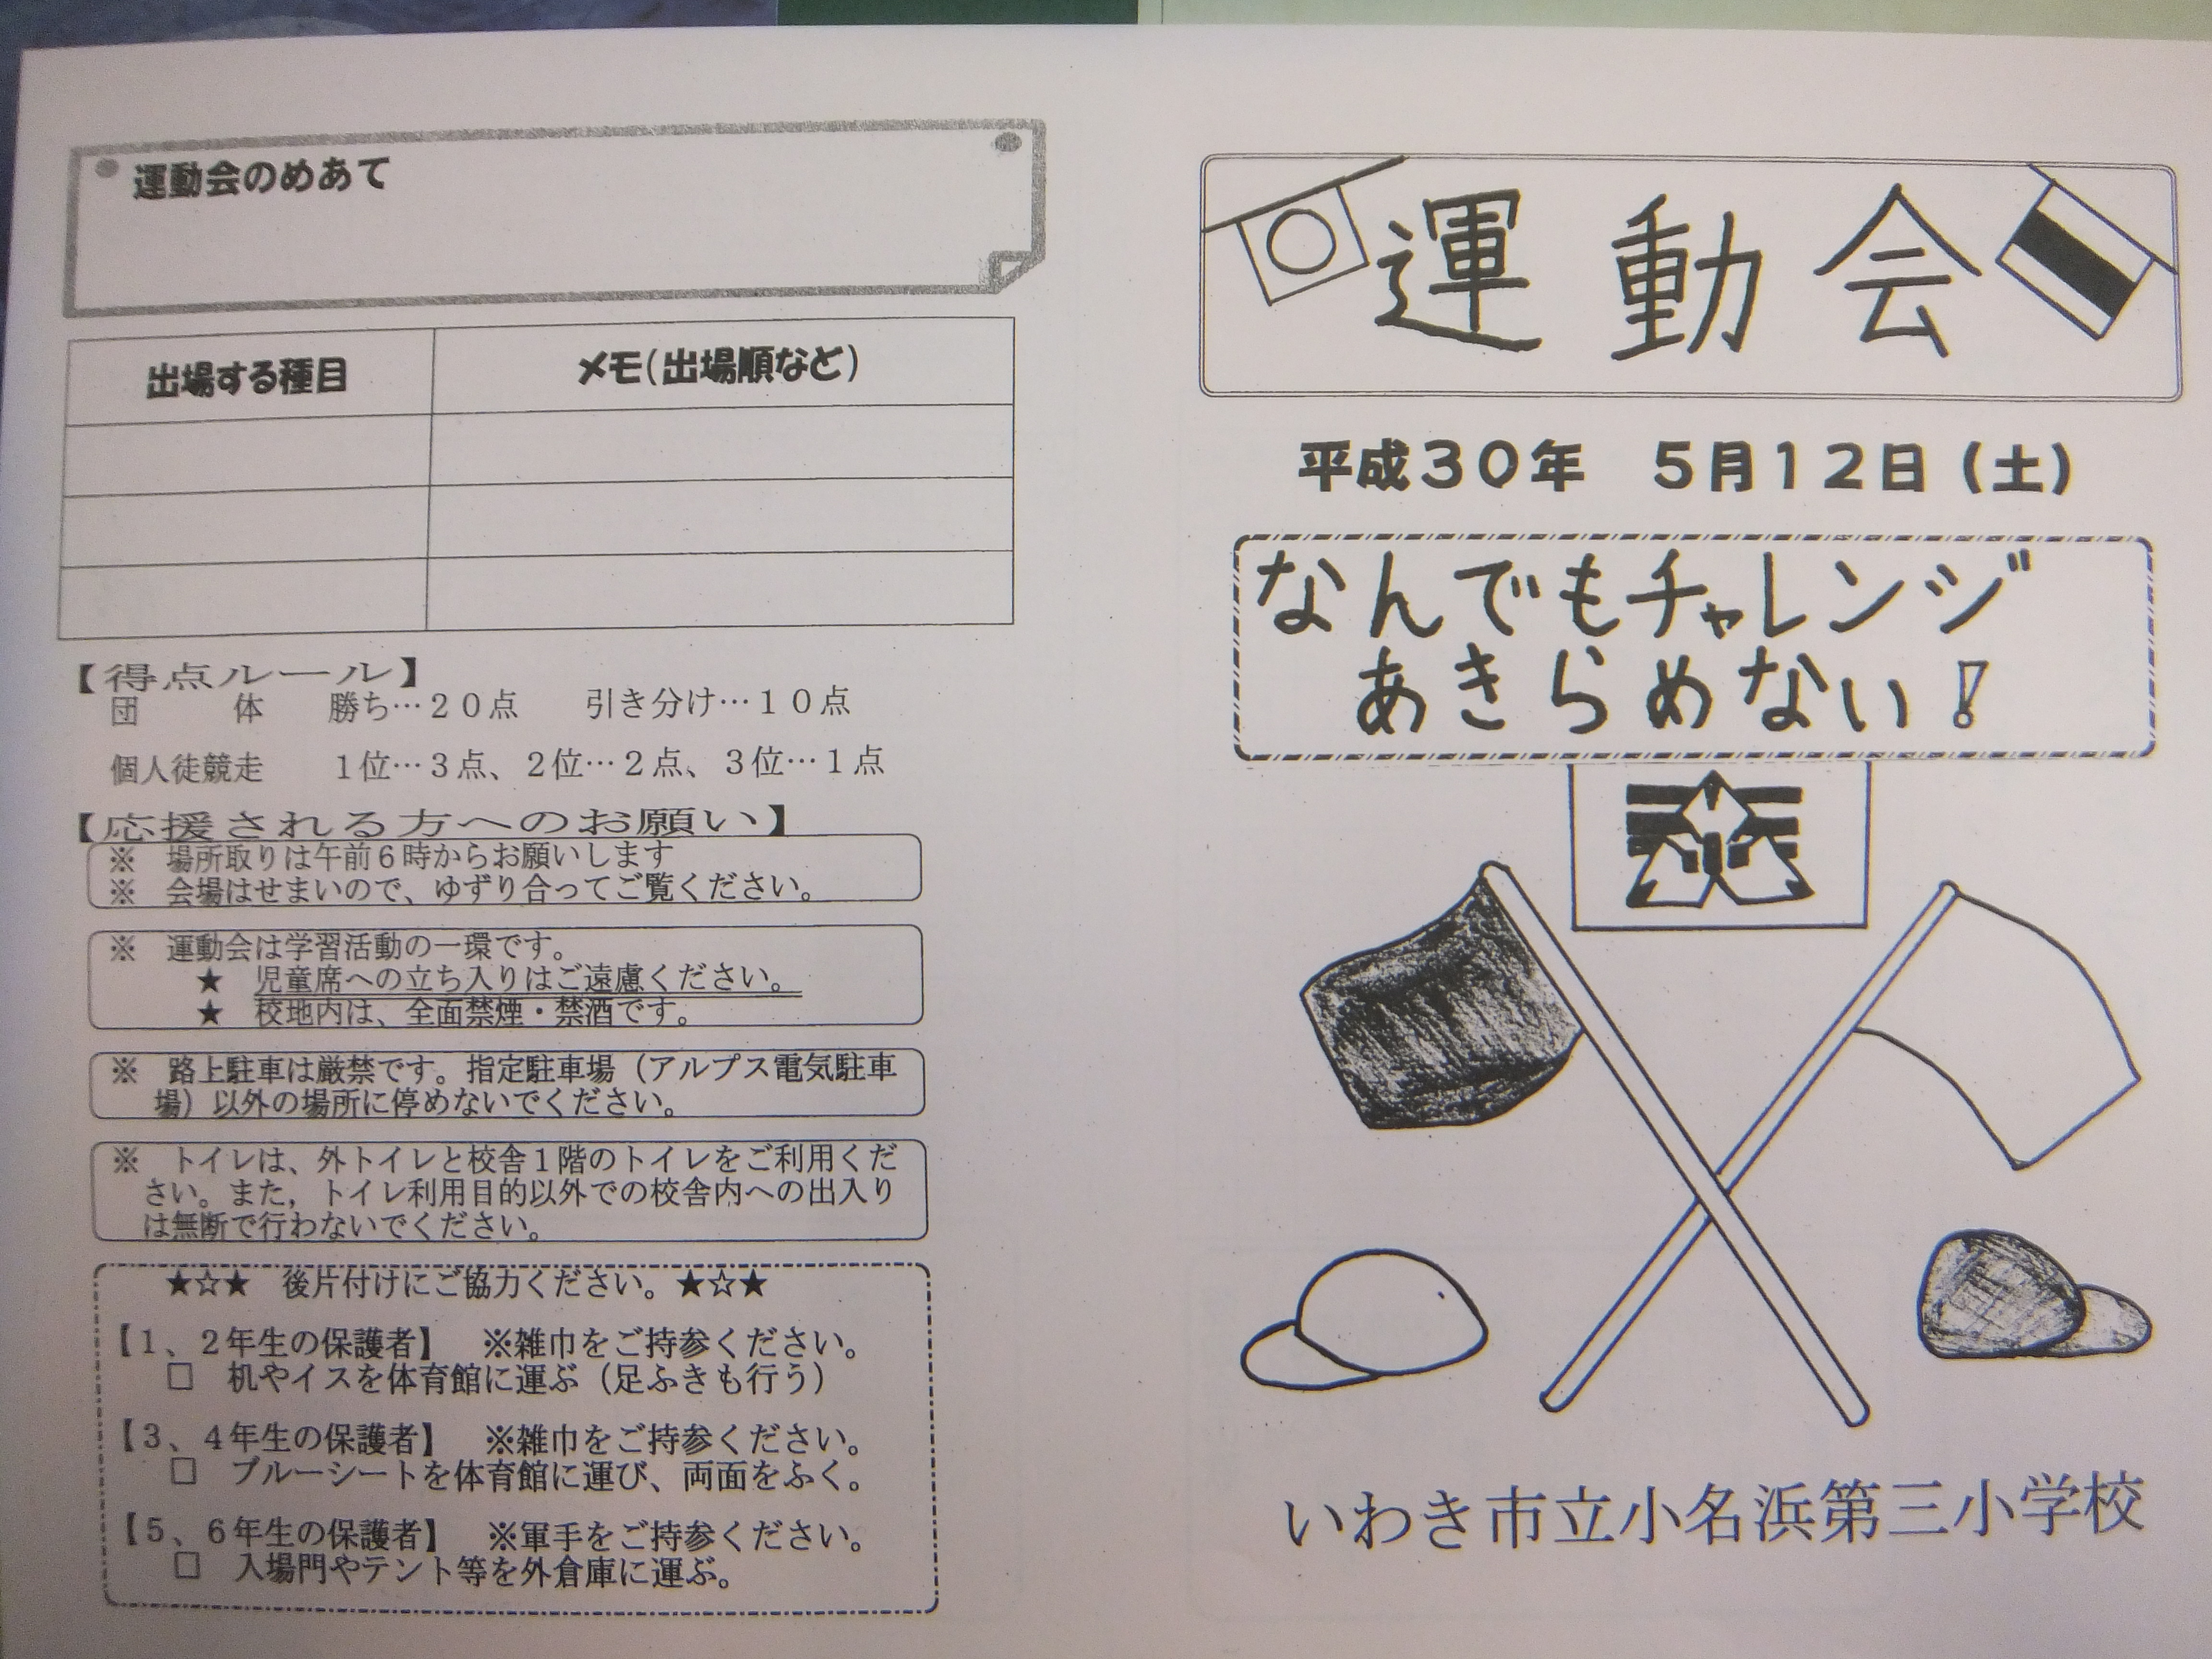 運動会のめあて
出場する種目 メモ(出場順など)
【得点ルール】
団　　　体　　勝ち…２０点　　引き分け…１０点
個人徒競走　　１位…３点、２位…２点、３位…１点
【応援される方へのお願い】
※　場所取りは午前６時からお願いします
※　会場はせまいので、ゆずり合ってご覧ください。
※　運動会は学習活動の一環です。
★　児童席への立ち入りはご遠慮ください。
★　校地内は、全面禁煙・禁酒です。
※　路上駐車は厳禁です。指定駐車場（アルプス電気駐車
場）以外の場所に停めないでください。
※　トイレは、外トイレと校舎１階のトイレをご利用くだ
さい。また，トイレ利用目的以外での校舎内への出入り
は無断で行わないでください。
★☆★　後片付けにご協力ください。★☆★
【１、２年生の保護者】　※雑巾をご持参ください。
□　机やイスを体育館に運ぶ（足ふきも行う）
【３、４年生の保護者】　※雑巾をご持参ください。
□　ブルーシートを体育館に運び、両面をふく。
【５、６年生の保護者】　※軍手をご持参ください。
□　入場門やテント等を外倉庫に運ぶ。
運動会
平成３０年　５月１２日（土）
なんでもチャレンジ
あきらめない！
いわき市立小名浜第三小学校